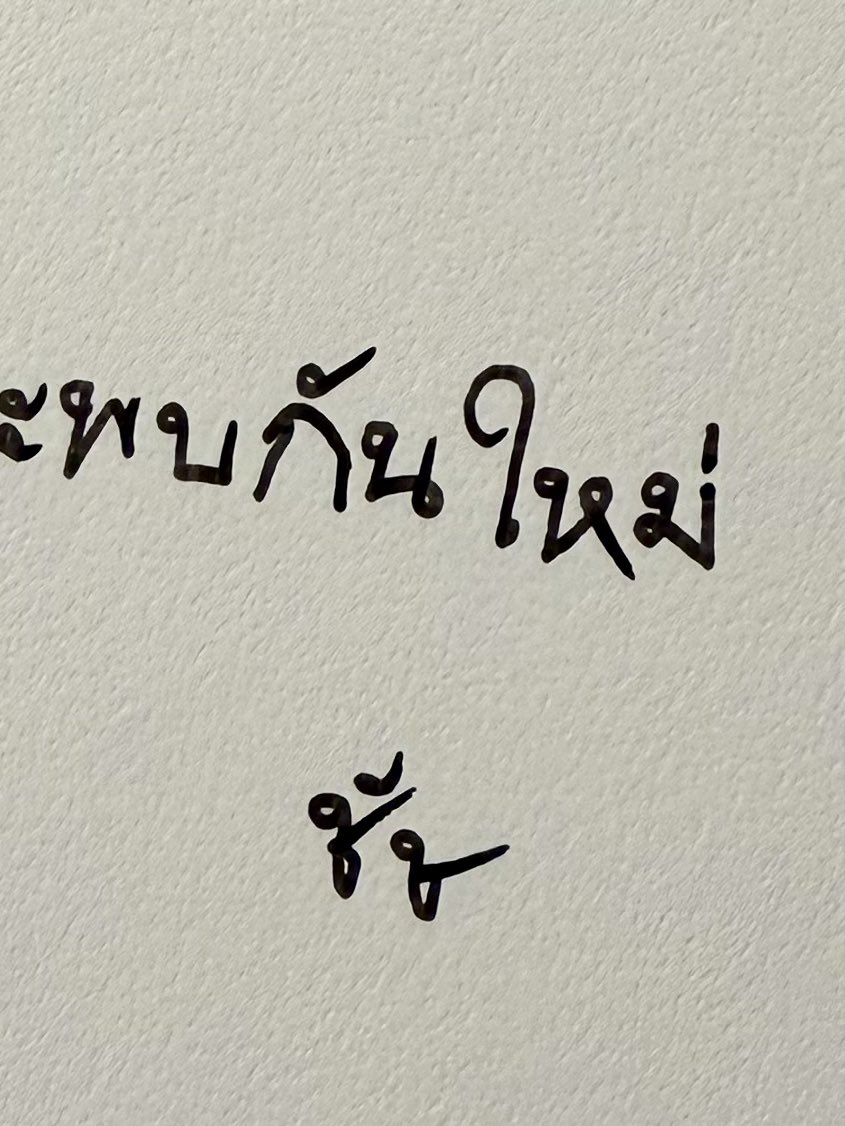 ะพบกันใหม่
ชัช